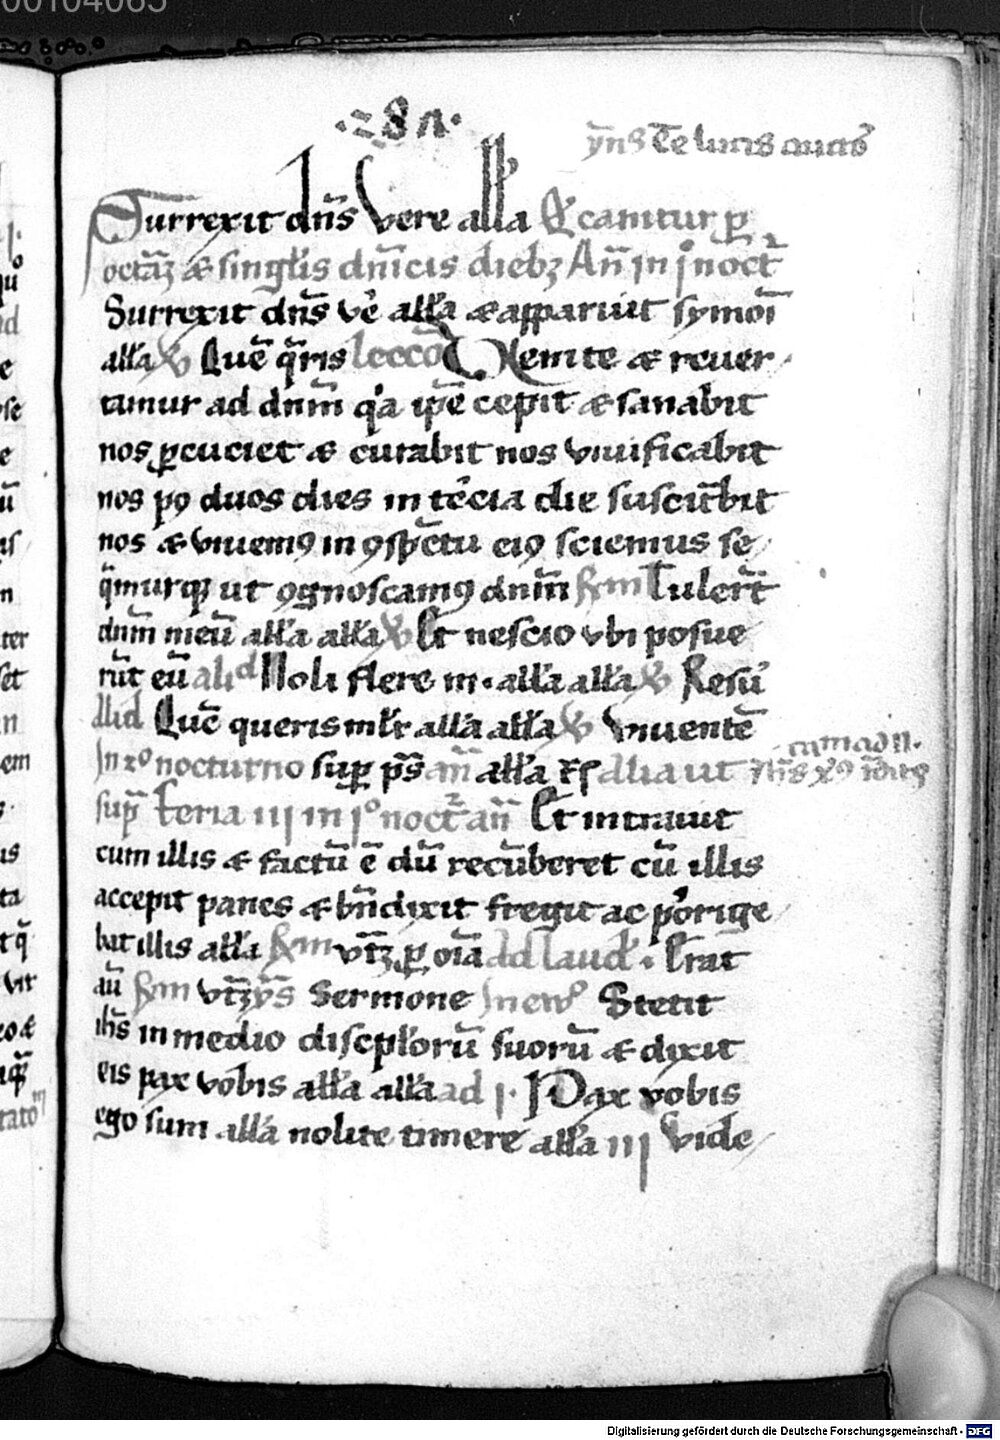 00104065
·287·
yn̄s Te lucis auctor
Surrexit dn̄s vere all'a Et cantitur ꝑ
octāꝫ & singl'is dn̄icis diebꝫ An̄ in jᵒ noct̄
Surrexit dn̄s vē all'a & apparuit symōi
all'a ℣ Quē q̄ris lecco Uenite & reuer
tamur ad dnm̄ q'a ip̄e cepit & sanabit
nos ꝑcuciet & curabit nos viuificabit
nos pꝰ duos dies in t'cia die suscitabit
nos & viuemꝰ in ꝯspc̄tu eiꝰ sciemus se
q̄murqꝫ ut ꝯgnoscamꝰ dnm̄ Rm̄ Tuler̄t
dnm̄ meū all'a all'a ℣ Et nescio vbi posue
rūt eū aliᵈ Noli flere m· all'a all'a ℣ Resu'
aliᵈ Quē queris ml'r all'a all'a ℣ viuentē
In 2ᵒ nocturno suꝑ ps̄ an̄ all'a Rs alia ut
sup̄ feria iij in jᵒ noct̄ an̄ Et intrauit
cum illis & factū ē dū recūberet cū illis
accepit panes & bn̄dixit fregit ac p'orige
bat illis all'a Rm̄ vt̄ꝫ ꝑ oīa Ad laud' · Erat
aū Rm̄ vt̄ꝫ ys̄ Sermone In ewᵒ Stetit
ih̄s in medio discpl'orū suorū & dixit
eis pax vobis all'a all'a ad j· Pax vobis
ego sum all'a nolite timere all'a iij Vide
Digitalisierung gefördert durch die Deutsche Forschungsgemeinschaft - DFG